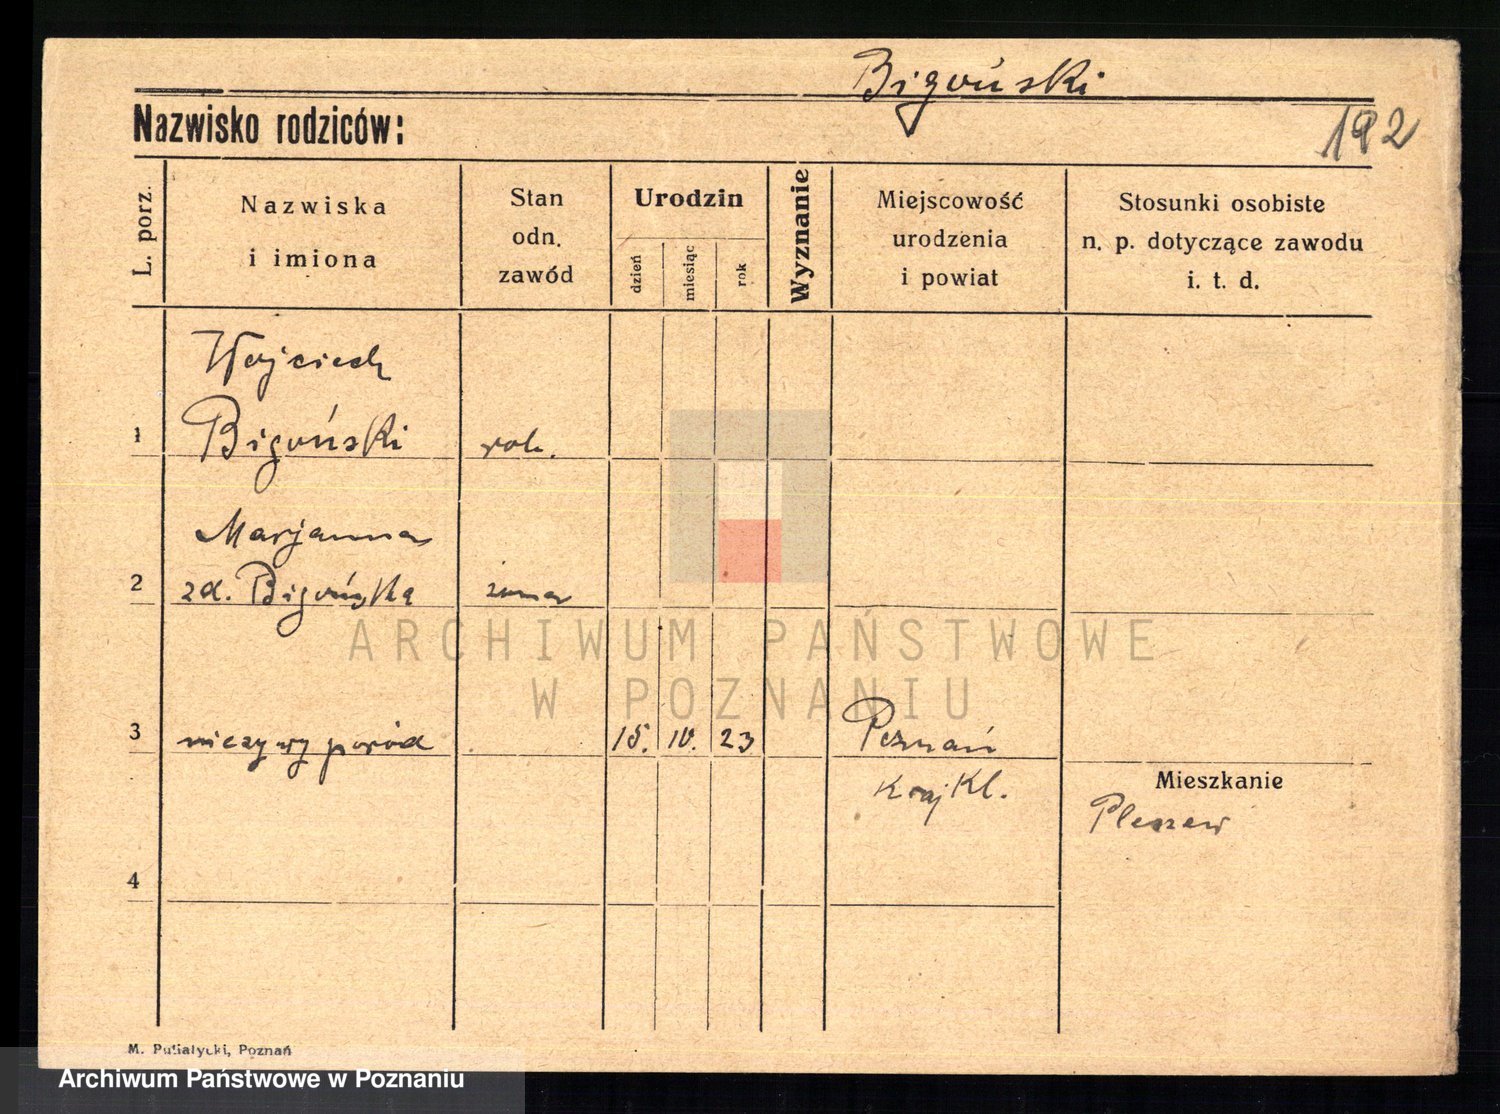 Bigoński
Nazwisko rodziców:
192
L. porz.
Nazwiska
i imiona
Stan
odn.
zawód
Urodzin
dzień
miesiąc
rok
Wyznanie
Miejscowość
urodzenia
i powiat
Stosunki osobiste
n. p. dotyczące zawodu
i. t. d.
Wojciech
1 Bigoński rob.
Marjanna
2 zd. Bigońska żona
3 nieżywy poród 15. IV. 23 Poznań
Kraj Kl.
Mieszkanie
Pleszew
4
ARCHIWUM PAŃSTWOWE
W POZNANIU
M. Putiatycki, Poznań
Archiwum Państwowe w Poznaniu